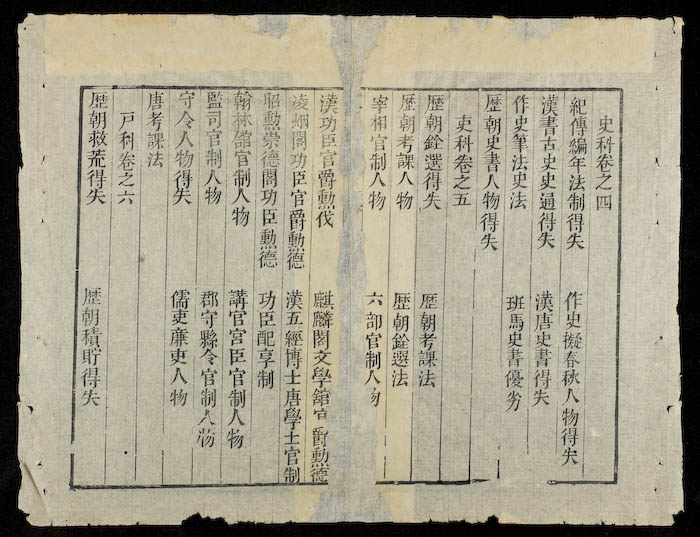 史科卷之四
紀傳編年法制得失 作史擬春秋人物得失
漢書古史史通得失 漢唐史書得失
作史筆法史法 班馬史書優劣
歷朝史書人物得失
吏科卷之五
歷朝銓選得失 歷朝考課法
歷朝考課人物 歷朝銓選法
宰相官制人物 六部官制人物
漢功臣官爵勲伐 麒麟閣文學館官爵勲德
凌烟閣功臣官爵勲德 漢五經博士唐學士官制
昭勲崇德閣功臣勲德 功臣配享制
翰林館官制人物 講官宮臣官制人物
監司官制人物 郡守縣令官制人物
守令人物得失 儒吏廉吏人物
唐考課法
戸科卷之六
歷朝救荒得失 歷朝積貯得失